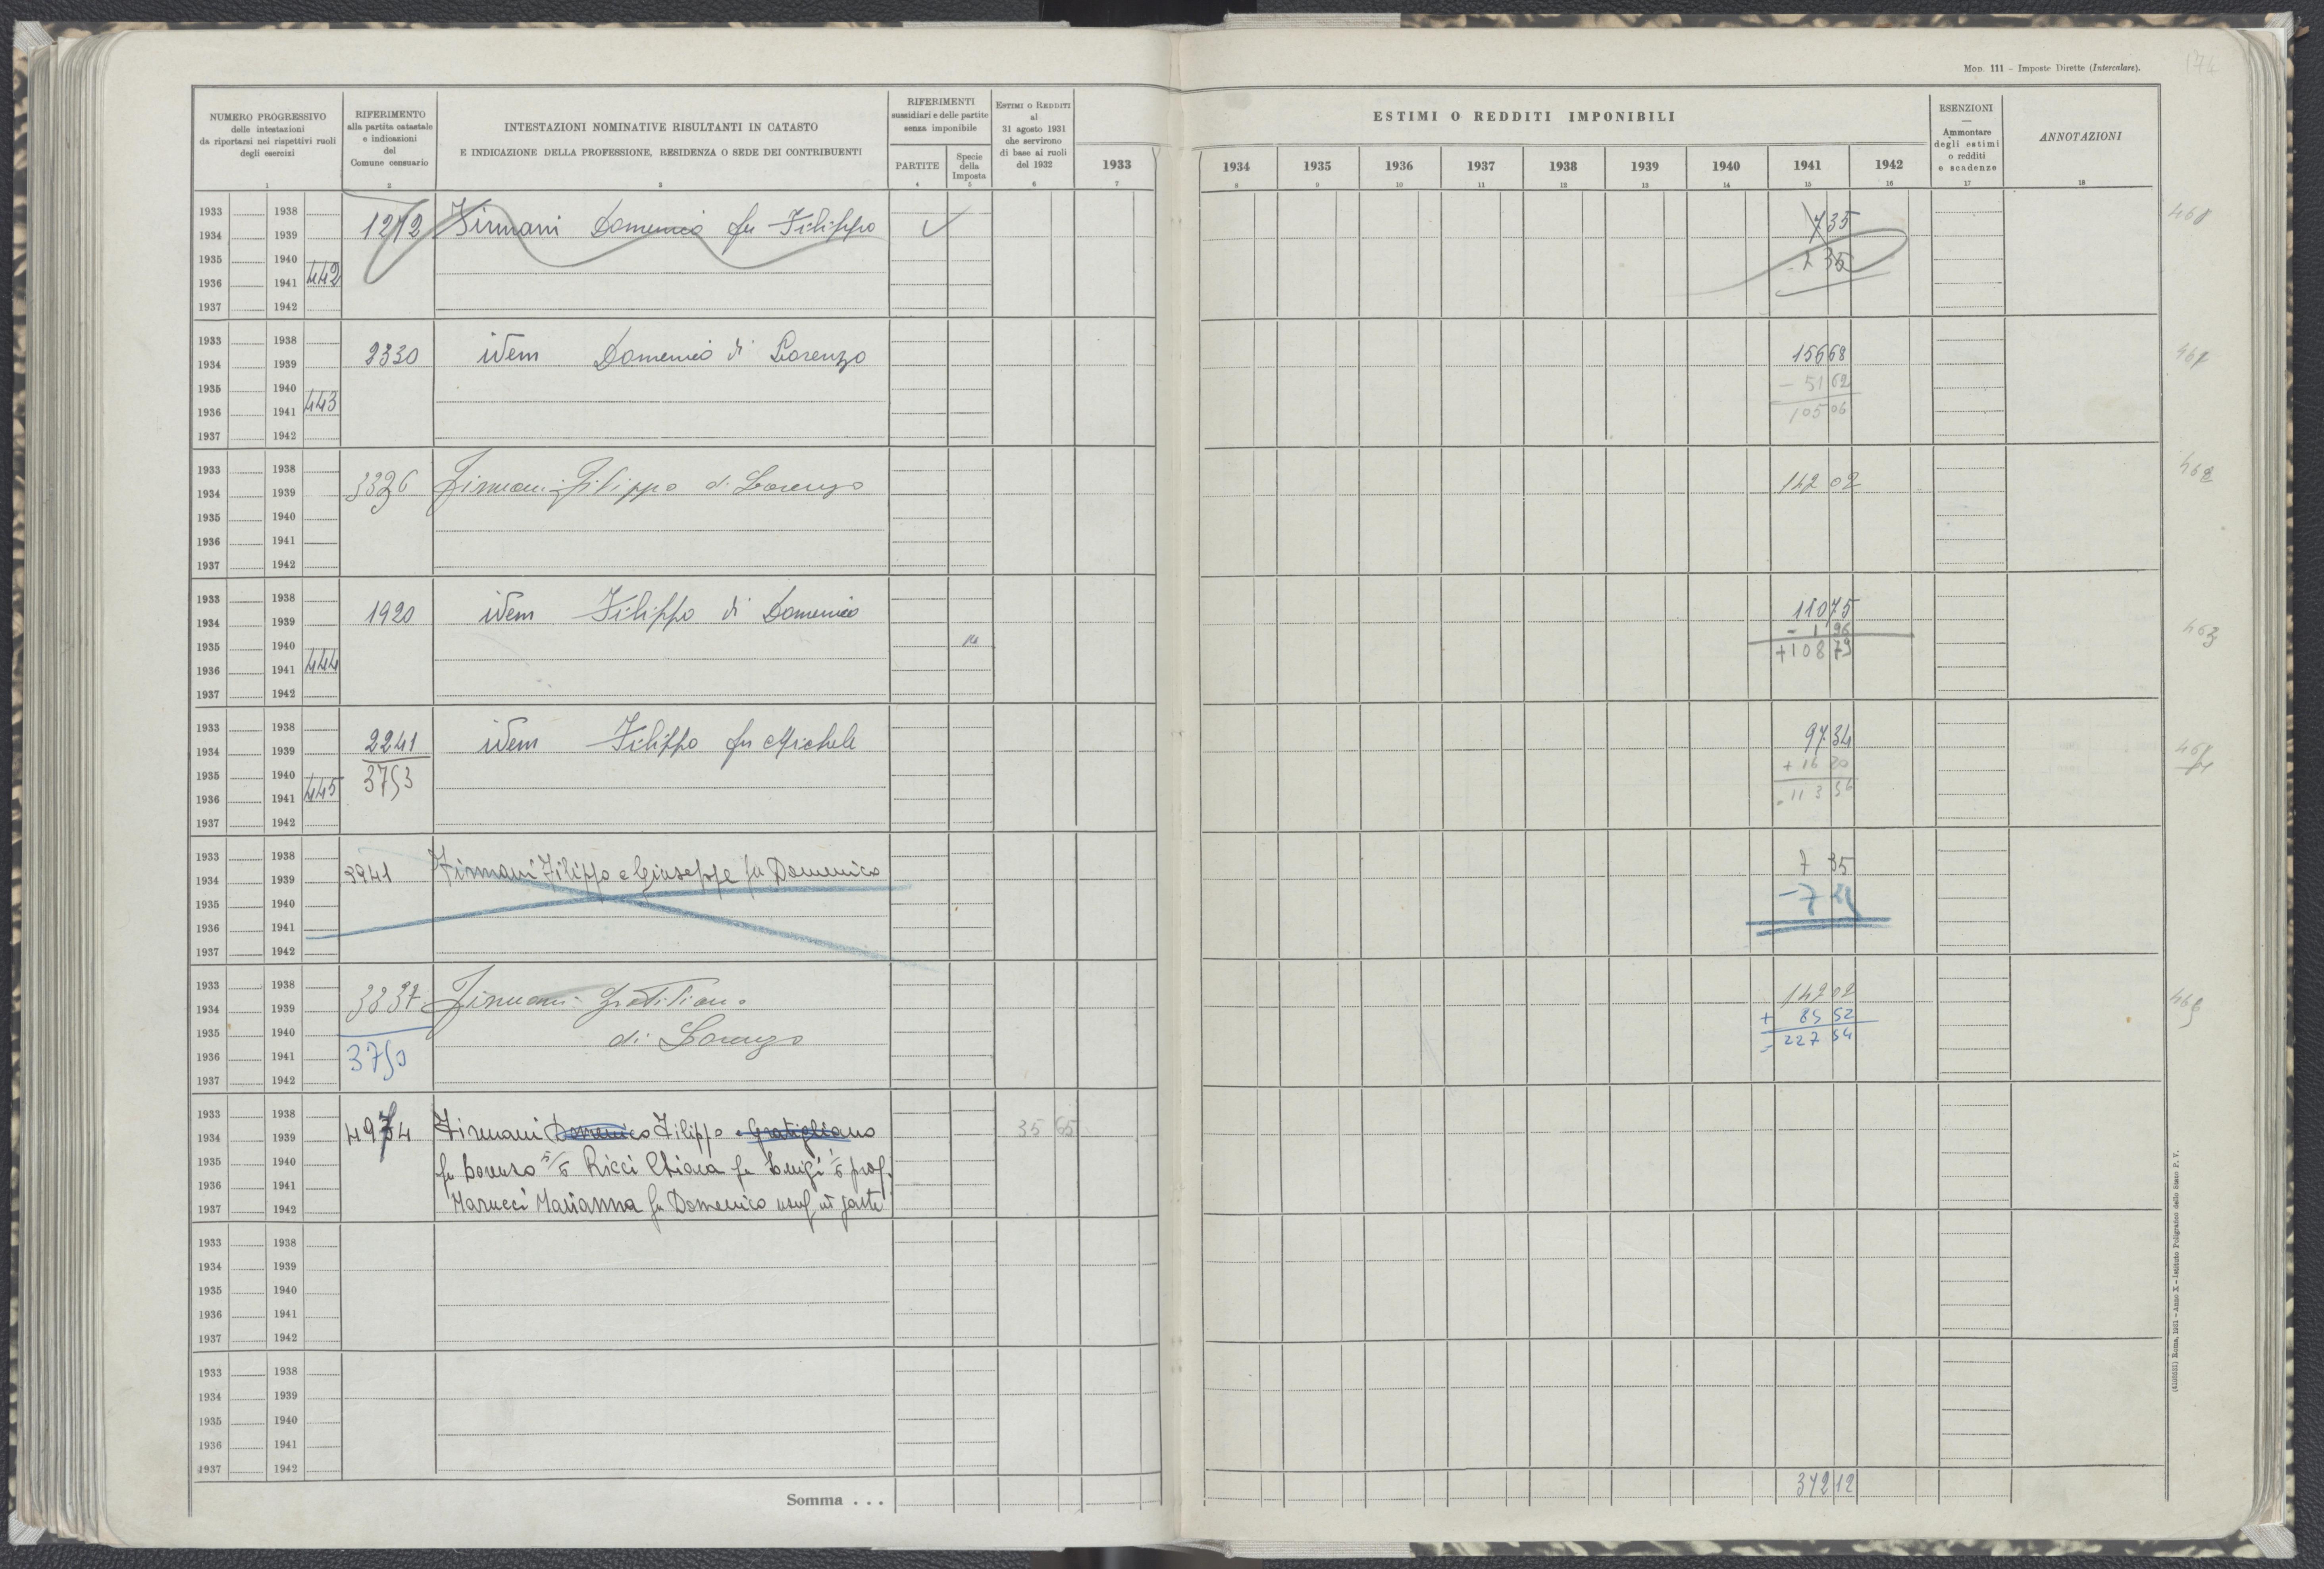 Mod. 111 - Imposte Dirette (Intercalare).
174
NUMERO PROGRESSIVO
delle intestazioni
da riportarsi nei rispettivi ruoli
degli esercizi
1
RIFERIMENTO
alla partita catastale
e indicazioni
del
Comune censuario
2
INTESTAZIONI NOMINATIVE RISULTANTI IN CATASTO
E INDICAZIONE DELLA PROFESSIONE, RESIDENZA O SEDE DEI CONTRIBUENTI
3
RIFERIMENTI
sussidiari e delle partite
senza imponibile
PARTITE
4
Specie
della
Imposta
5
Estimi o Redditi
al
31 agosto 1931
che servirono
di base ai ruoli
del 1932
6
ESTIMI O REDDITI IMPONIBILI
1933 1934 1935 1936 1937 1938 1939 1940 1941 1942
7 8 9 10 11 12 13 14 15 16
ESENZIONI
—
Ammontare
degli estimi
o redditi
e scadenze
17
ANNOTAZIONI
18
1933 1938
1934 1939 1272 Firmani Domenico fu Filippo 7 35
1935 1940 - 7 35
1936 1941 442
1937 1942
1933 1938
1934 1939 2330 idem Domenico di Lorenzo 156 68
1935 1940 - 51 62
1936 1941 443 105 06
1937 1942
1933 1938
1934 1939 Firmani Filippo di Lorenzo 142 02 462
1935 1940
1936 1941
1937 1942
1933 1938
1934 1939 1920 idem Filippo di Domenico 110 75 463
1935 1940 - 1 96
1936 1941 444 + 108 79
1937 1942
1933 1938
1934 1939 2241 idem Filippo fu Michele 97 34
1935 1940 3753 + 16 20
1936 1941 445 113 54
1937 1942
1933 1938
1934 1939 3741 Firmani Filippo e Giuseppe fu Domenico 7 35
1935 1940
1936 1941
1937 1942
1933 1938
1934 1939 3337 Firmani Gratiliano 142 02
1935 1940 di Lorenzo + 85 52
1936 1941 3750 = 227 54
1937 1942
1933 1938
1934 1939 4974 Firmani Domenico Filippo e Gratigliano 35 65
1935 1940 fu Lorenzo 5/6 Ricci Chiara fu Luigi 1/6 prop.
1936 1941 Marucci Marianna fu Domenico usuf in parte
1937 1942
1933 1938
1934 1939
1935 1940
1936 1941
1937 1942
1933 1938
1934 1939
1935 1940
1936 1941
1937 1942
Somma . . . 372 12
(4106531) Roma, 1931 - Anno X - Istituto Poligrafico dello Stato P. V.